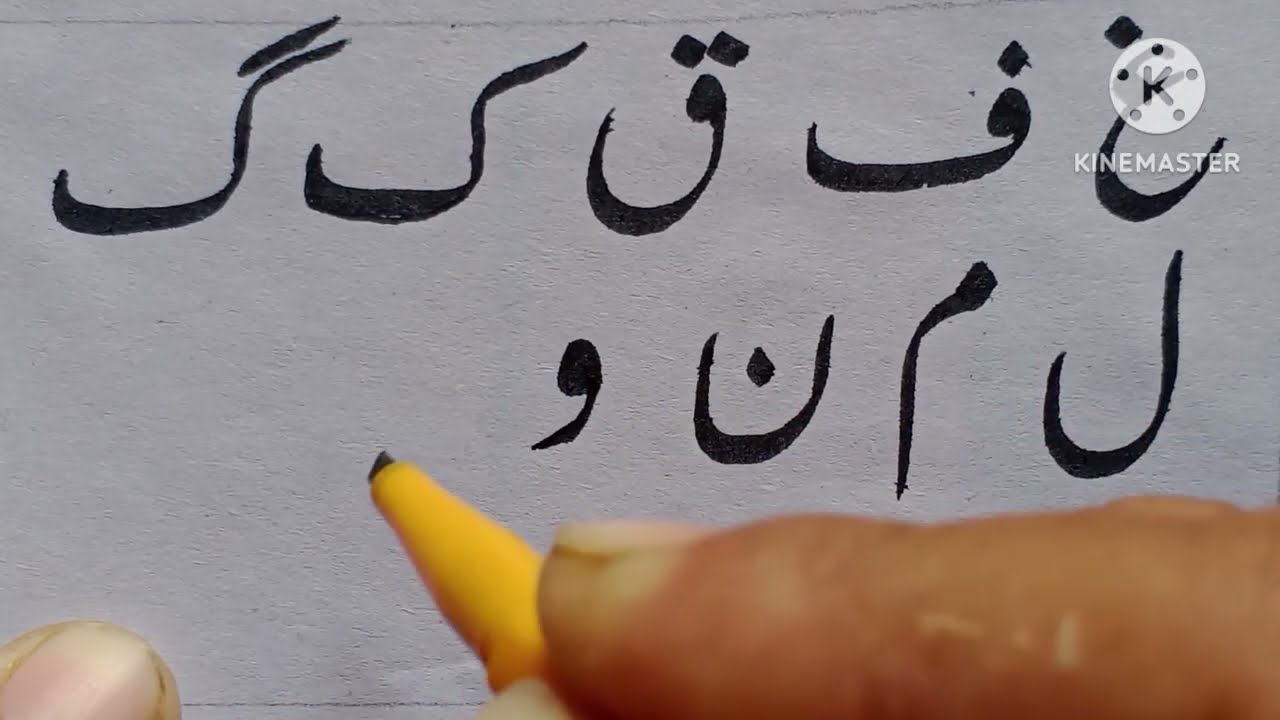 غ ف ق ک گ
ل م ن و
KINEMASTER